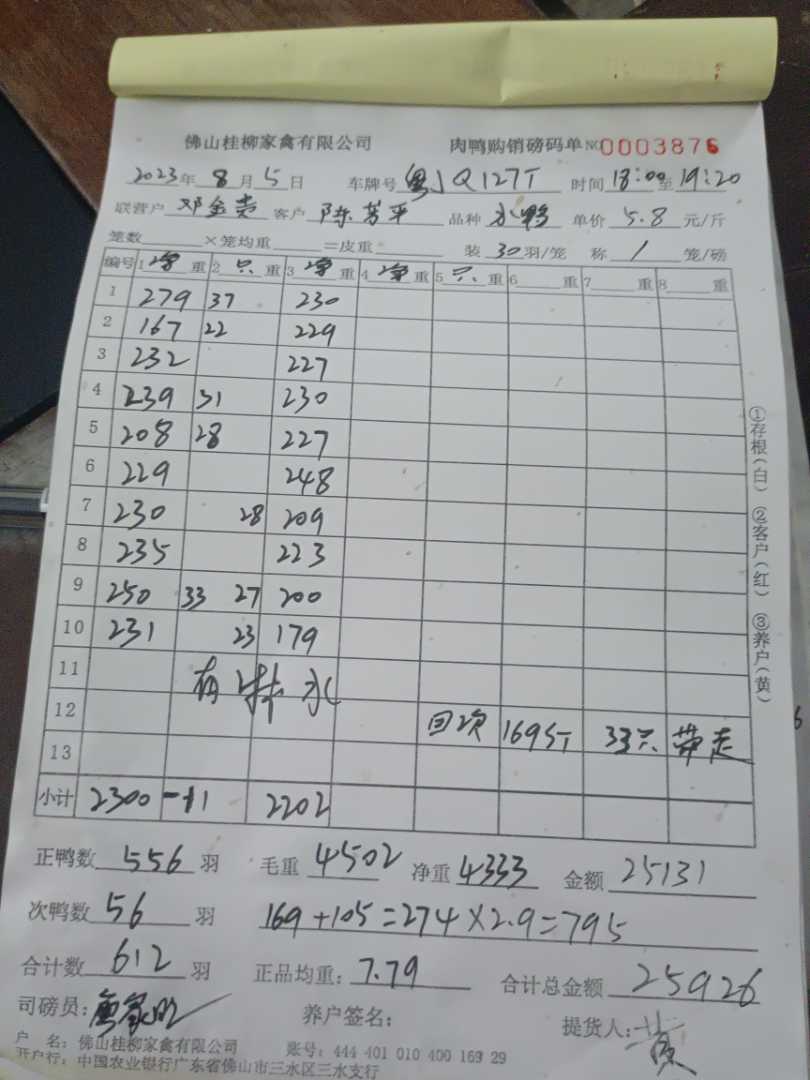 佛山桂柳家禽有限公司 肉鸭购销磅码单 NO 0003876
2023年 8月 5日 车牌号 粤JQ127T 时间 18:00至19:20
联营户 邓金贵 客户 陈芳平 品种 水鸭 单价 5.8 元/斤
笼数 ×笼均重 =皮重 装 30 羽/笼 称 1 笼/磅
编号 1 重 2 只 重 3 重 4 重 5 只 重 6 重 7 重 8 重
1 279 37 230
2 167 22 229
3 232 227
4 239 31 230
5 208 28 227
6 229 248
7 230 28 209
8 235 223
9 250 33 27 200
10 231 23 179
11 有 水
12 回次 169斤 33只 带走
13
小计 2300 -11 2202
正鸭数 556 羽 毛重 4502 净重 4333 金额 25131
次鸭数 56 羽 169+105=274×2.9=795
合计数 612 羽 正品均重: 7.79 合计总金额 25926
司磅员: 养户签名: 提货人: 黄
户 名: 佛山桂柳家禽有限公司 账号: 444 401 010 400 169 29
开户行: 中国农业银行广东省佛山市三水区三水支行
①存根(白) ②客户(红) ③养户(黄)